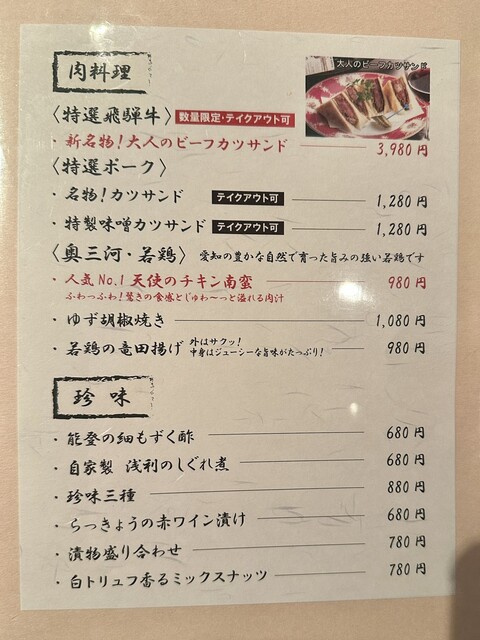 肉料理
大人のビーフカツサンド
〈特選飛騨牛〉 数量限定・テイクアウト可
・新名物！大人のビーフカツサンド 3,980円
〈特選ポーク〉
・名物！カツサンド テイクアウト可 1,280円
・特製味噌カツサンド テイクアウト可 1,280円
〈奥三河・若鶏〉 愛知の豊かな自然で育った旨みの強い若鶏です
・人気No.1 天使のチキン南蛮 980円
ふわっふわ！驚きの食感とじゅわ〜っと溢れる肉汁
・ゆず胡椒焼き 1,080円
・若鶏の竜田揚げ 外はサクッ！ 980円
中身はジューシーな旨味がたっぷり！
珍味
・能登の細もずく酢 680円
・自家製 浅利のしぐれ煮 680円
・珍味三種 880円
・らっきょうの赤ワイン漬け 680円
・漬物盛り合わせ 780円
・白トリュフ香るミックスナッツ 780円